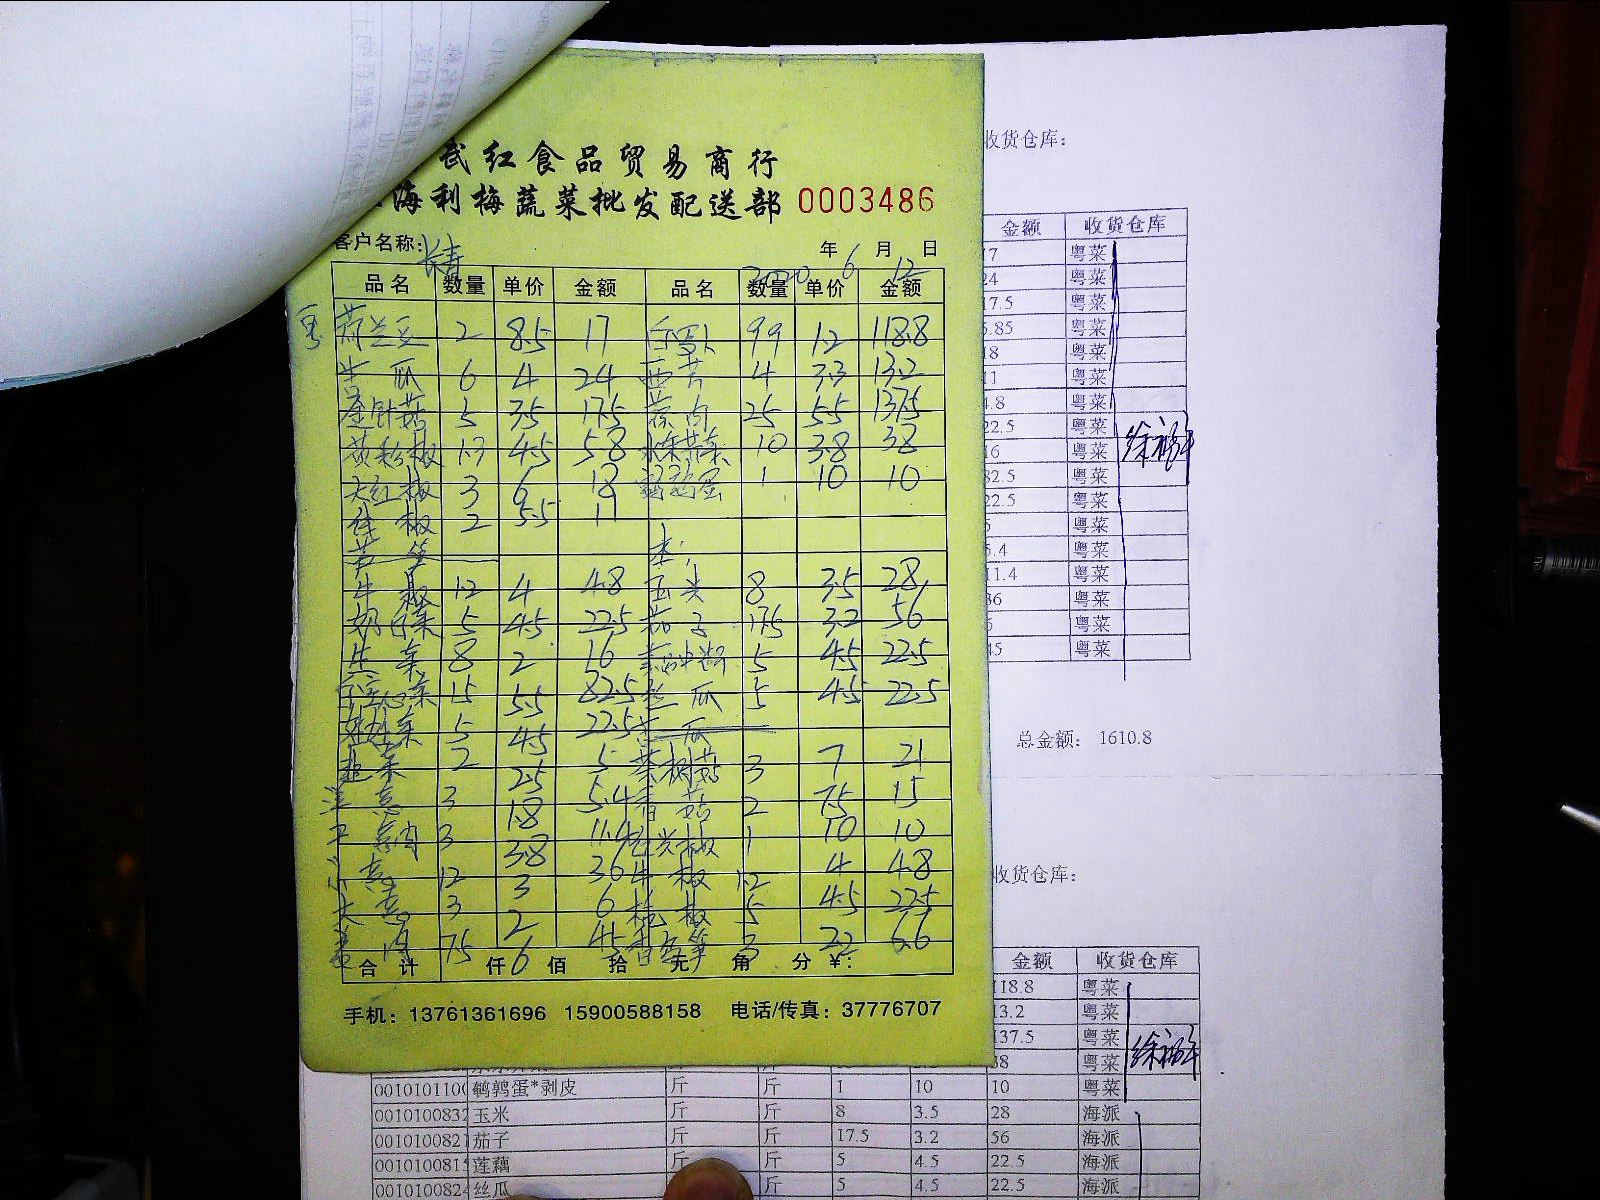 武红食品贸易商行
海利梅蔬菜批发配送部 0003486
客户名称: 长寿 年 6 月 12 日
品名 数量 单价 金额 品名 数量 单价 金额
荷兰豆 2 8.5 17 99 1.2 118.8
瓜 6 4 24 西芹 4 3.3 13.2
金针菇 5 3.5 17.5 25 5.5 137.5
黄彩椒 1.3 4.5 5.8 10 3.8 38
大红椒 3 6 18 蛋 1 10 10
椒 2 5.5 11
芦笋
牛椒 12 4 4.8 玉米 8 3.5 28
奶白菜 5 4.5 22.5 茄子 17.5 3.2 56
生菜 8 2 16 5 4.5 22.5
空心菜 15 5.5 82.5 丝瓜 5 4.5 22.5
5 4.5 22.5 瓜
韭菜 2 2.5 5 茶树菇 3 7 21
洋葱 3 1.8 5.4 香菇 2 7.5 15
3 3.8 11.4 椒 1 10 10
小葱 12 3 36 牛椒 1.2 4 4.8
大葱 3 2 6 椒 5 4.5 22.5
7.5 6 45 笋 3 2.2 6.6
合计 仟 佰 拾 元 角 分 ¥:
手机: 13761361696 15900588158 电话/传真: 37776707
收货仓库:
金额 收货仓库
17 粤菜
24 粤菜
17.5 粤菜
5.85 粤菜
18 粤菜
11 粤菜
4.8 粤菜
22.5 粤菜
16 粤菜
82.5 粤菜
22.5 粤菜
5 粤菜
5.4 粤菜
11.4 粤菜
36 粤菜
6 粤菜
45 粤菜
总金额: 1610.8
收货仓库:
金额 收货仓库
118.8 粤菜
13.2 粤菜
137.5 粤菜
38 粤菜
0010101100 鹌鹑蛋*剥皮 斤 斤 1 10 10 粤菜
0010100832 玉米 斤 斤 8 3.5 28 海派
0010100821 茄子 斤 斤 17.5 3.2 56 海派
0010100815 莲藕 斤 斤 5 4.5 22.5 海派
0010100824 丝瓜 斤 5 4.5 22.5 海派